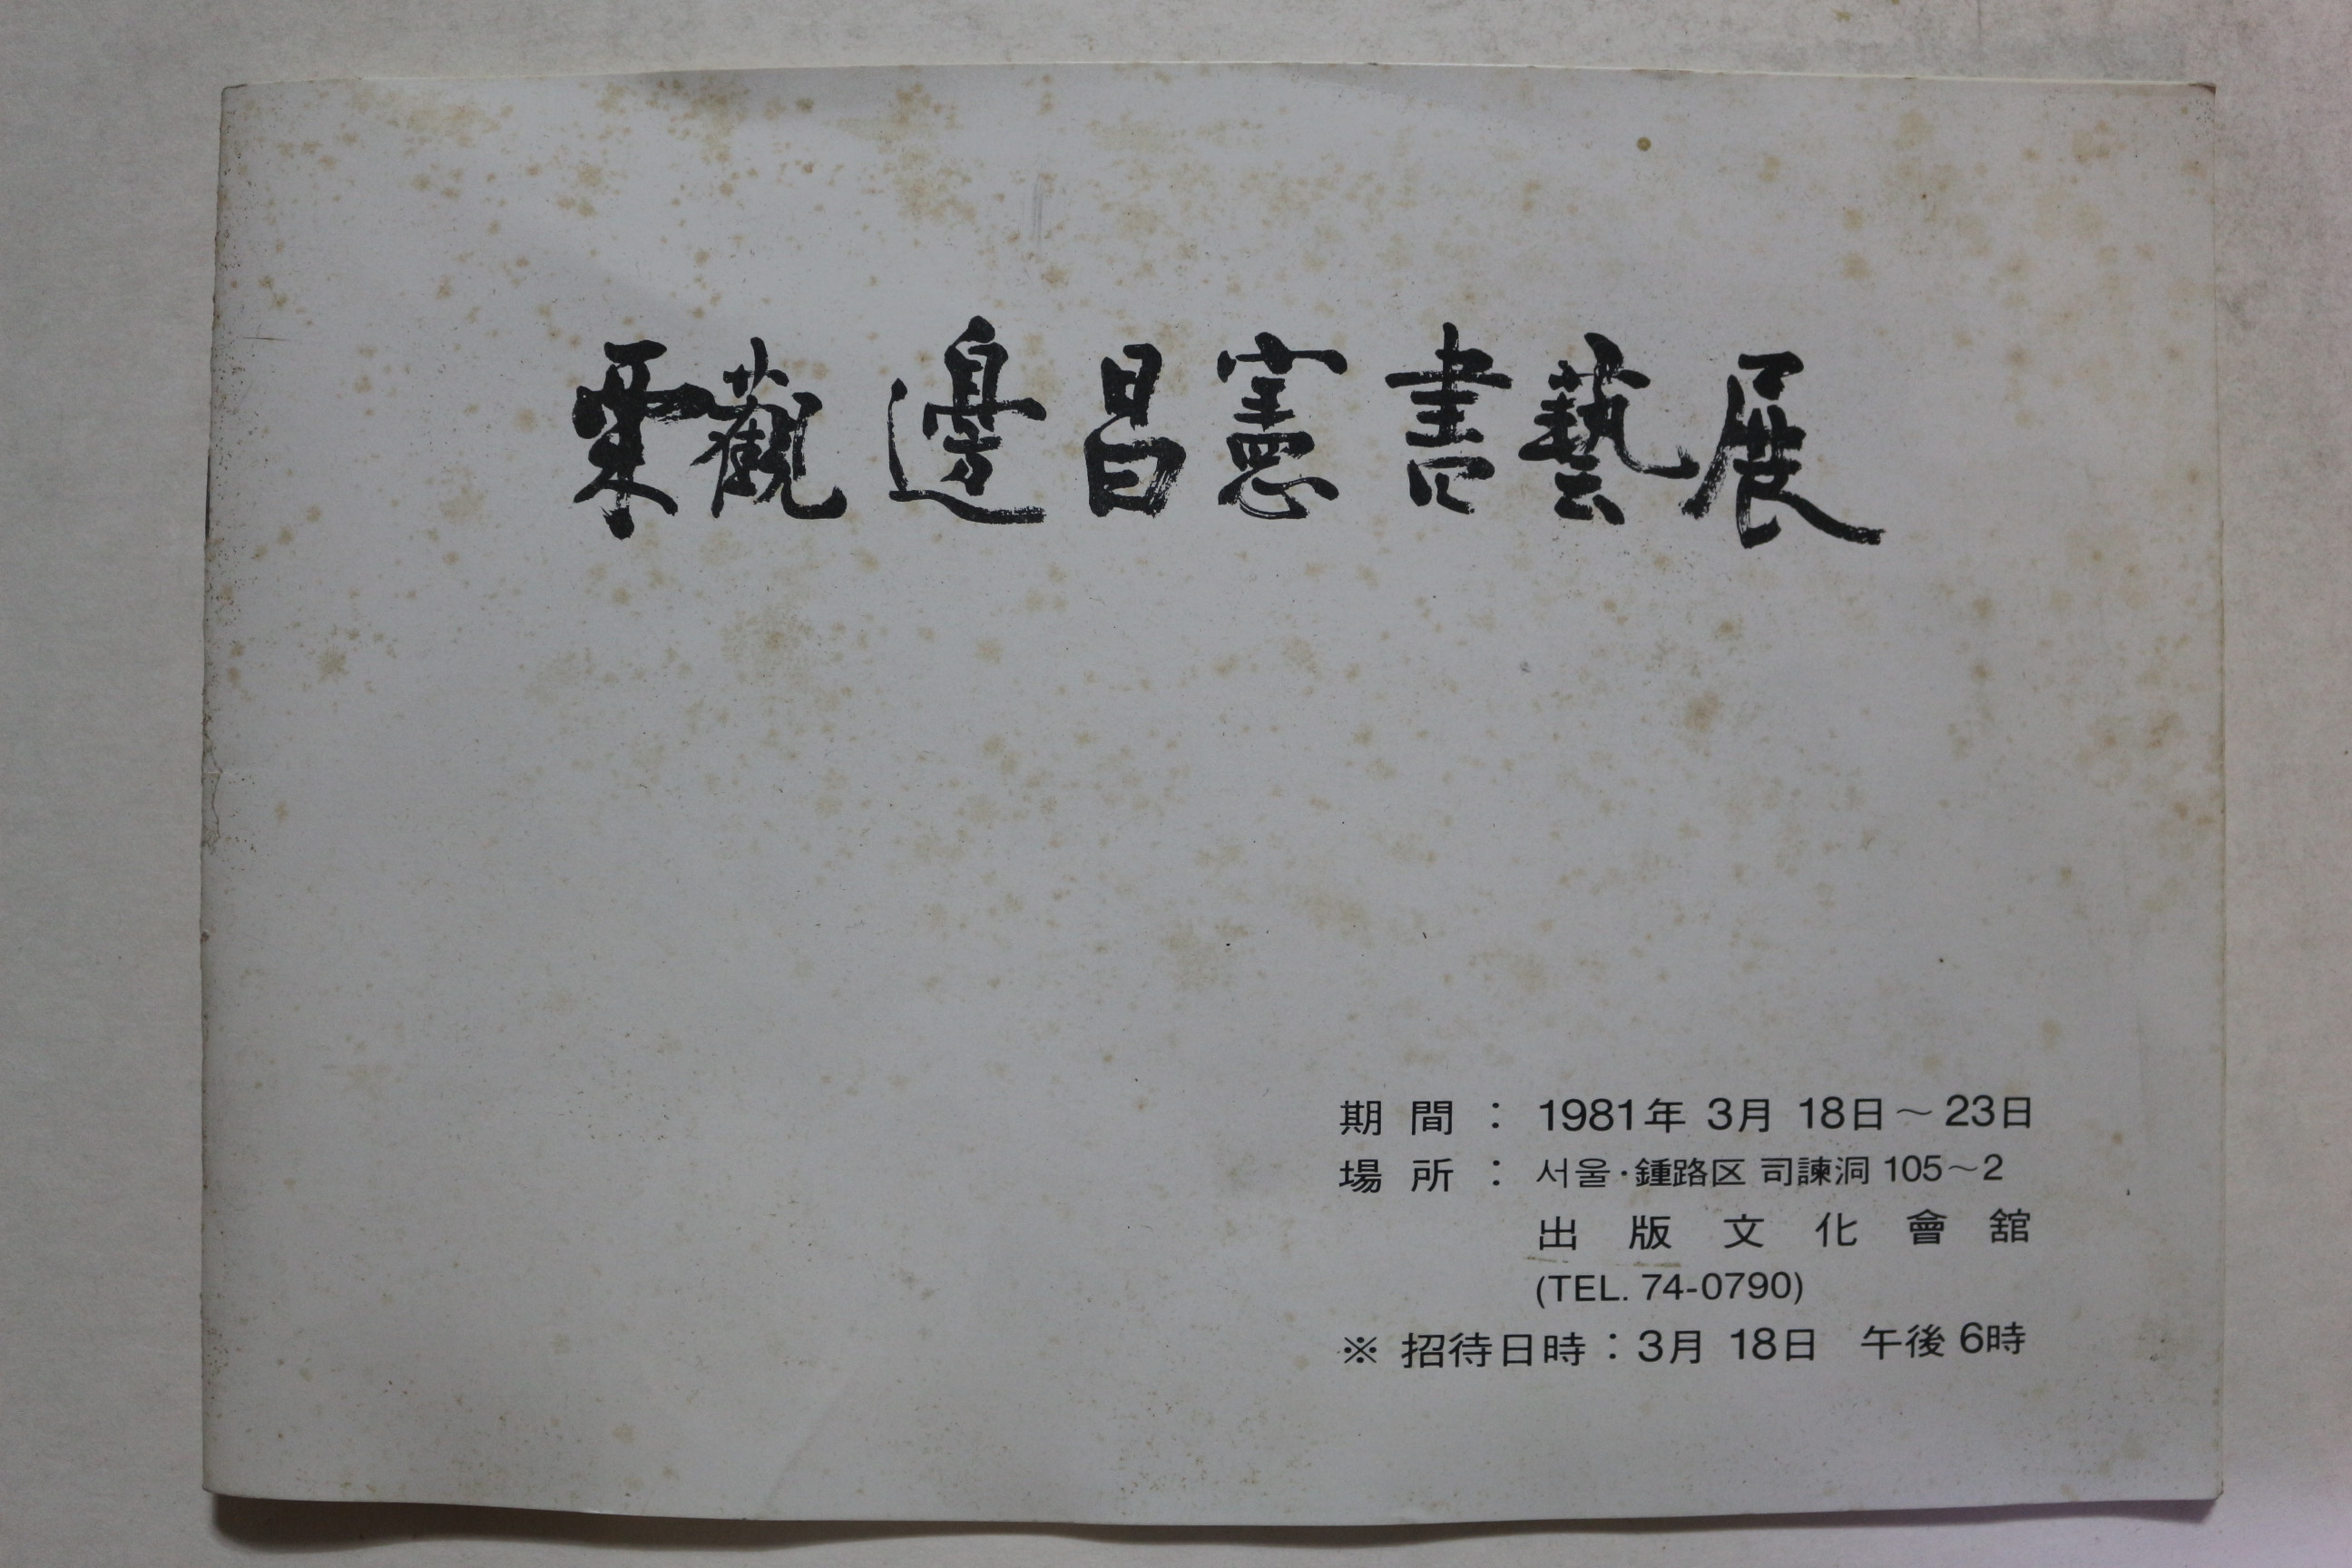 栗觀 邊昌憲 書藝展
期 間 : 1981年 3月 18日～23日
場 所 : 서울·鍾路区 司諫洞 105～2
出 版 文 化 會 舘
(TEL. 74-0790)
※ 招待日時 : 3月 18日 午後 6時